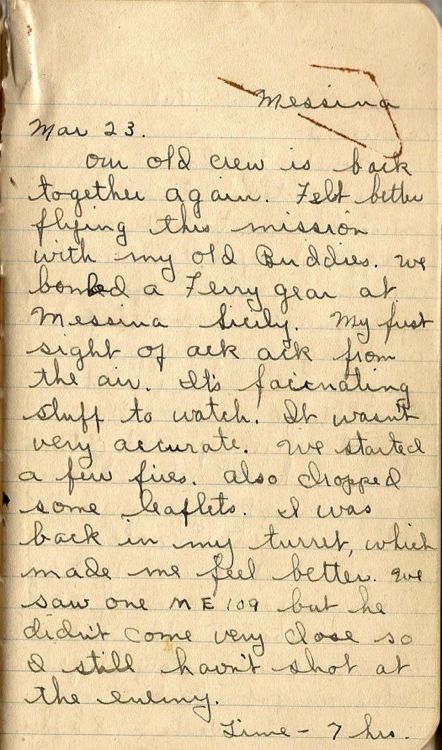 Messina
Mar 23.
Our old crew is back
together again. Felt better
flying this mission
with my old Buddies. We
bombed a Ferry gear at
Messina Sicily. My first
sight of ack ack from
the air. It's facinating
stuff to watch. It wasn't
very accurate. We started
a few fires. Also dropped
some leaflets. I was
back in my turret, which
made me feel better. We
saw one ME 109 but he
didn't come very close so
I still havn't shot at
the enemy.
Time - 7 hrs.